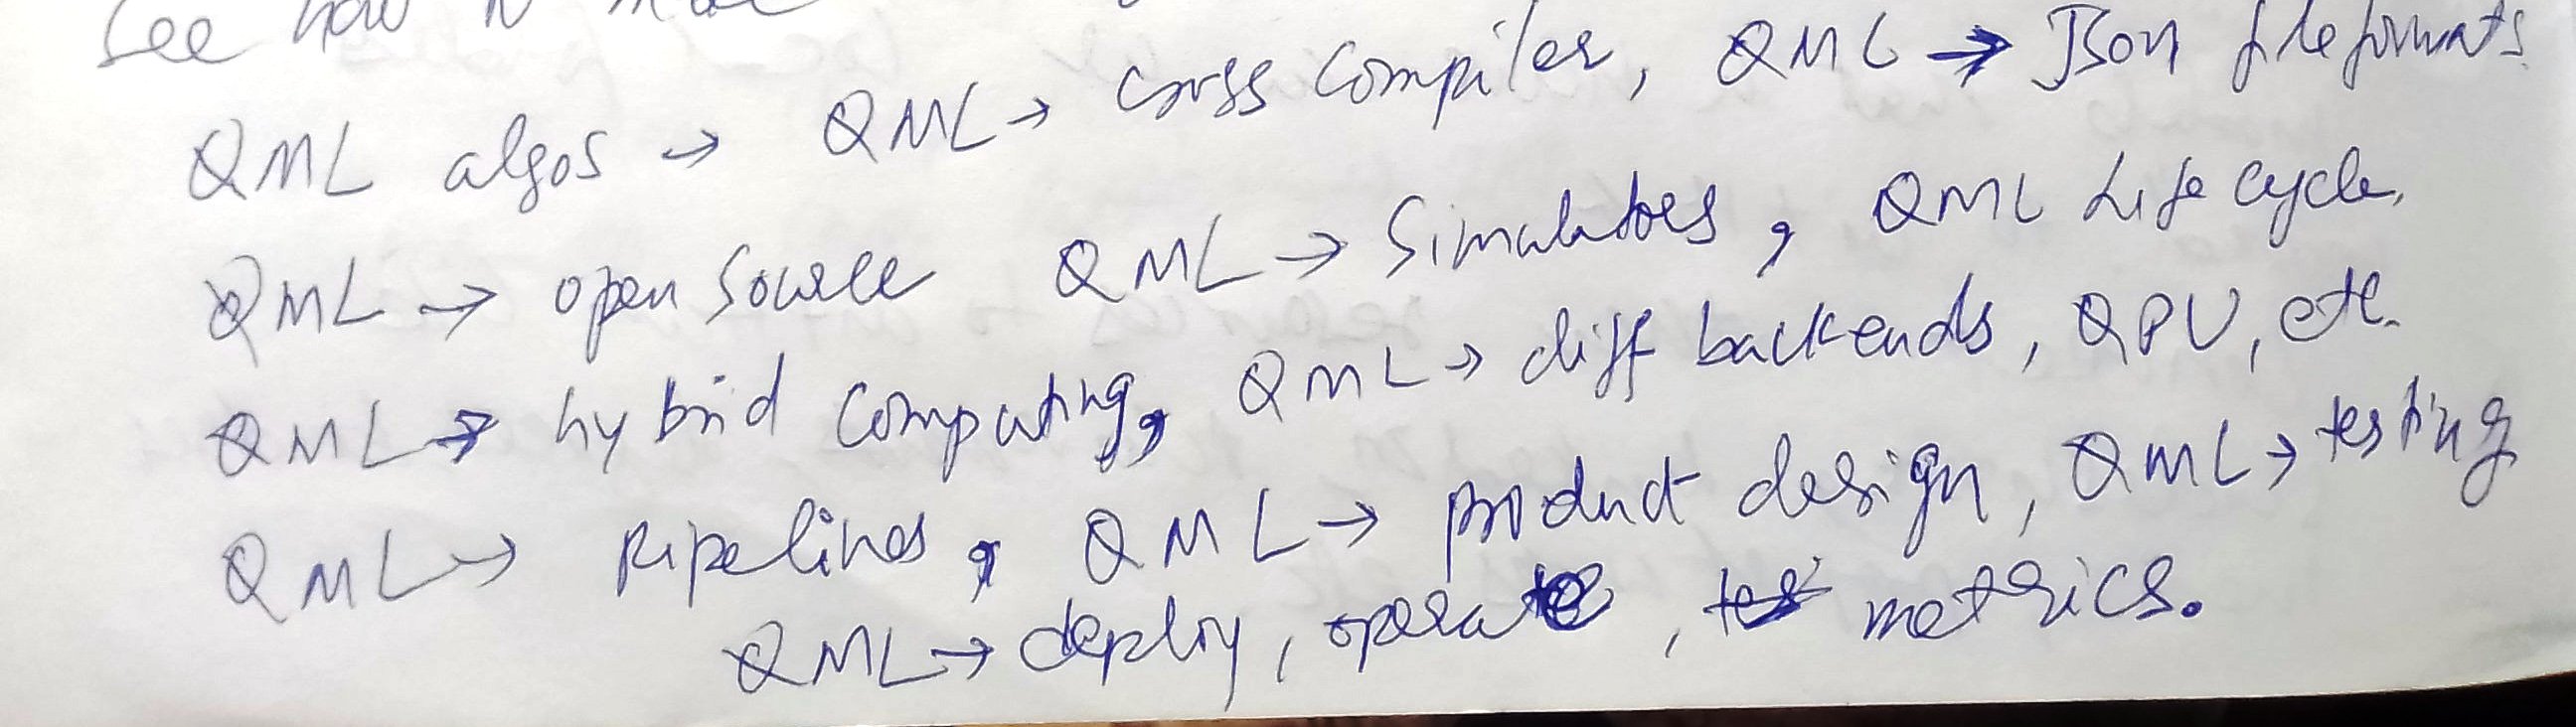 See how
QML algos → QML → cross compiler, QML → Json file formats
QML → open source QML → Simulators, QML Life cycle,
QML → hybrid computing, QML → diff backends, QPU, etc.
QML → pipelines, QML → product design, QML → testing
QML → deploy, operate, test metrics.